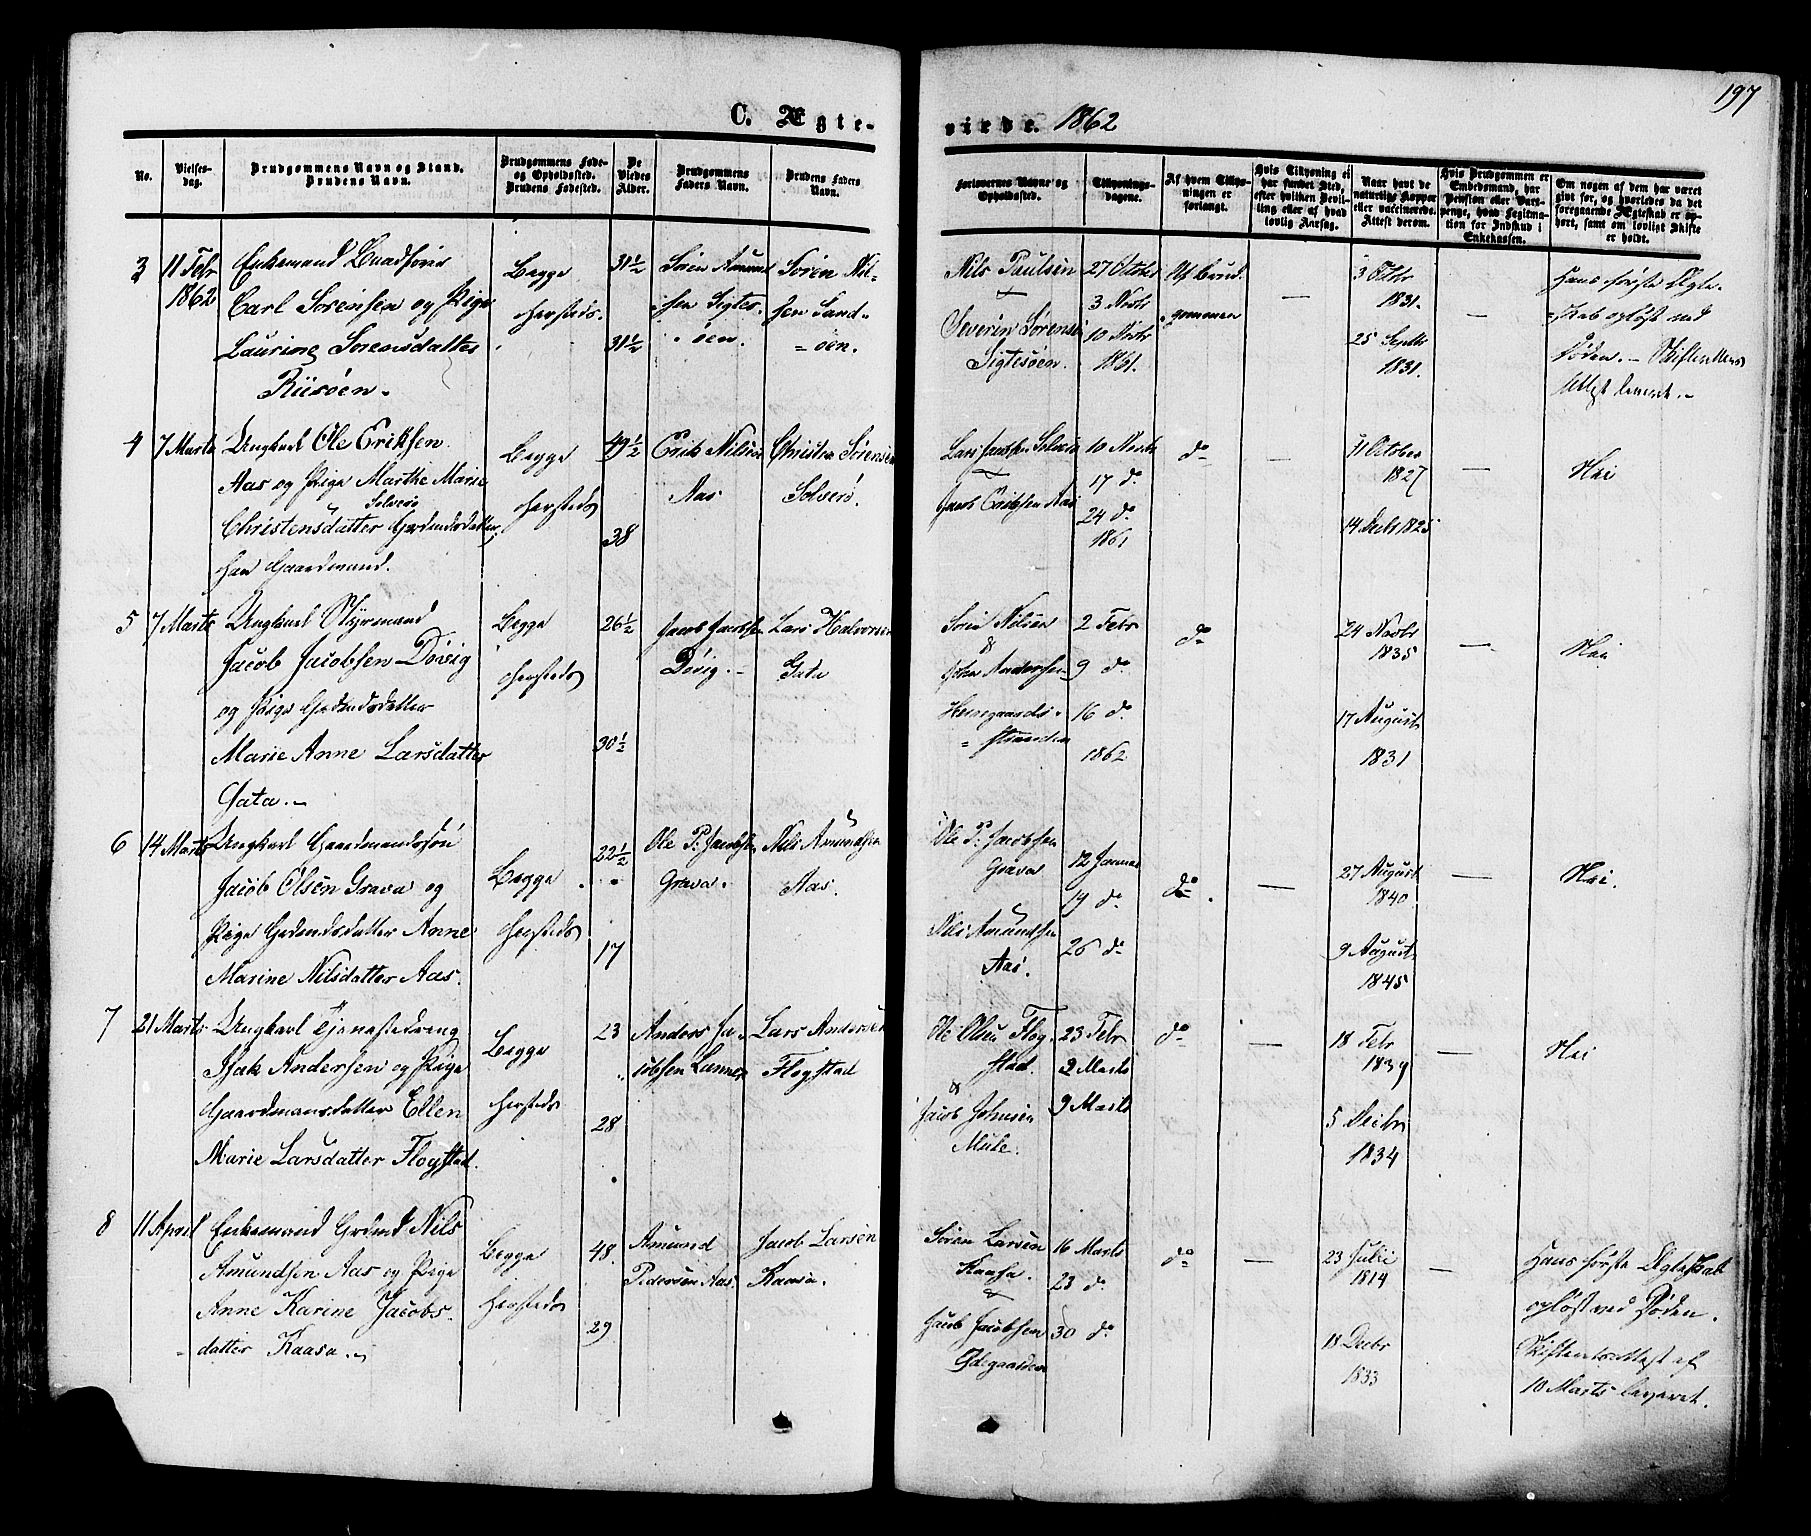 197
C. Ægte-
vicde. 1862
No.
Vielses-
dag.
Brudgommens Navn og Stand.
Brudens Navn.
Brudgommens Føde-
og Opholdssted.
Brudens Fødested.
De
Viedes
Alder.
Brudgommens
Faders Navn.
Brudens Faders
Navn.
Forlovernes Navne og
Opholdssted.
Tillysnings-
dagene.
Af hvem Tillys-
ningen er
forlangt.
Hvis Tillysning ei
har fundet Sted,
efter hvilken Bevil-
ling eller af hvad
lovlig Aarsag.
Naar havt de
naturlige Kopper
eller vaccinerede.
Attest derom.
Hvis Brudgommen er
Embedsmand, har
Pension eller Vart-
penge, hvad Legitima-
tion for Indskud i
Enkekassen.
Om nogen af dem har været
givt for, og hvorledes da det
foregaaende Ægteskab er op-
hørt, samt om lovligt Skifte
er holdt.
3
11 Febr
1862
Enkemand
Carl Sørensen og Pige
Laurine Sørensdatter
Riisøen.
Begge
hersteds.
31½
31½
Søren Amund
sen Sigtes
øen.
Søren Nil-
sen Sand-
øen.
Nils Paulsen
Severin Sørensen
Sigtesøen.
27 Octobr
3 Novbr
10 Novbr
1861.
Af Brud-
gommen
—
3 Octbr
1831.
25 Septbr
1831.
—
Hans første Ægte-
skab opløst ved
Døden. – Skifterettens
Attest leveret. –
4
7 Marts
Ungkarl Ole Eriksen
Aas og Pige Marthe Marie
Solverø
Christensdatter Gårdmdsdatter,
han Gaardmand.
Begge
hersteds
49½
38
Erik Nilsen
Aas
Christen Sørensen
Solverø.
Lars Jacobsen Solverø
Jacob Eriksen Aas
10 Novbr
17 do
24 do
1861
do
—
31 October
1827
14 Decbr 1825
—
Nei
5
7 Marts
Ungkarl Styrmand
Jacob Jacobsen Dövig
og Pige Gårdmdsdatter
Marie Anne Larsdatter
Gata. –
Begge
hersteds
26½
30½
Jacob Jacobsen
Dövig. –
Lars Halvorsen
Gata
Søren Nilsen
&
John Andersen
Herregaards-
stranden
2 Febr
9 do
16 do
1862
do
24 Novbr
1835
17 August
1831
—
Nei
6
14 Marts
Ungkarl Gaardmandssøn
Jacob Olsen Grava og
Pige Gårdmdsdatter Anne
Marine Nilsdatter Aas.
Begge
hersteds
22½
17
Ole P. Jacobsen
Grava.
Nils Amundsen
Aas.
Ole P. Jacobsen
Grava
Nils Amundsen
Aas.
12 Januar
19 do
26 do
do
—
27 August
1840.
9 August
1845
—
Nei.
7
21 Marts
Ungkarl Tjenestedreng
Isak Andersen og Pige
Gaardmansdatter Ellen
Marie Larsdatter Flogstad.
Begge
hersteds
23
28
Anders Ja-
cobsen Lunner
Lars Andersen
Flogstad
Ole Olsen Flog-
stad.
&
Jacob Johnsen
Mule.
23 Febr
2 Marts
9 Marts
do
—
18 Febr
1839
5 Decbr
1834
—
Nei
8
11 April
Enkemand Gårdmd Nils
Amundsen Aas og Pige
Anne Karine Jacobs-
datter Kaasa. –
Begge
hersteds
48.
29
Amund
Pedersen Aas.
Jacob Larsen
Kaasa.
Søren Larsen
Kaasa
&
Jacob Jacobsen
Ødegaarden
16 Marts
23 do
30 do
do
—
23 Julii
1814
18 Decbr
1833
—
Hans første Ægteskab
opløst ved Døden.
Skifteretsattest af
10 Marts leveret.